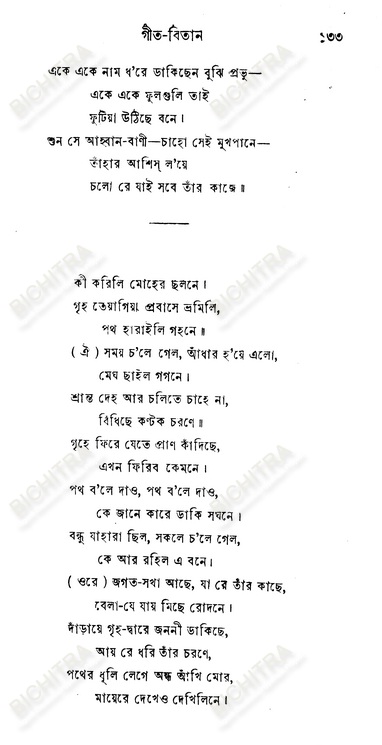 গীত-বিতান ১৩৩
একে একে নাম ধ'রে ডাকিছেন বুঝি প্রভু—
একে একে ফুলগুলি তাই
ফুটিয়া উঠিছে বনে।
শুন সে আহ্বান-বাণী—চাহো সেই মুখপানে—
তাঁহার আশিস্ ল'য়ে
চলো রে যাই সবে তাঁর কাজে॥
কী করিলি মোহের ছলনে।
গৃহ তেয়াগিয়া প্রবাসে ভ্রমিলি,
পথ হারাইলি গহনে॥
( ঐ ) সময় চ'লে গেল, আঁধার হ'য়ে এলো,
মেঘ ছাইল গগনে।
শ্রান্ত দেহ আর চলিতে চাহে না,
বিঁধিছে কণ্টক চরণে॥
গৃহে ফিরে যেতে প্রাণ কাঁদিছে,
এখন ফিরিব কেমনে।
পথ ব'লে দাও, পথ ব'লে দাও,
কে জানে কারে ডাকি সঘনে।
বন্ধু যাহারা ছিল, সকলে চ'লে গেল,
কে আর রহিল এ বনে।
( ওরে ) জগত-সখা আছে, যা রে তাঁর কাছে,
বেলা-যে যায় মিছে রোদনে।
দাঁড়ায়ে গৃহ-দ্বারে জননী ডাকিছে,
আয় রে ধরি তাঁর চরণে,
পথের ধূলি লেগে অন্ধ আঁখি মোর,
মায়েরে দেখেও দেখিলিনে।
BICHITRA
BICHITRA
BICHITRA
BICHITRA
BICHITRA
BICHITRA
BICHITRA
BICHITRA